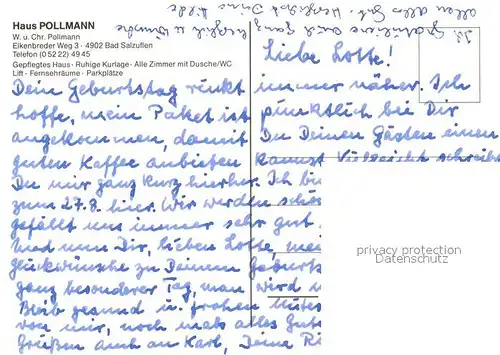 Haus POLLMANN
W. u. Chr. Pollmann
Eikenbreder Weg 3 · 4902 Bad Salzuflen
Telefon (0 52 22) 49 45
Gepflegtes Haus · Ruhige Kurlage · Alle Zimmer mit Dusche/WC
Lift · Fernsehräume · Parkplätze
Liebe Lotte!
Dein Geburtstag rückt immer näher. Ich
hoffe, mein Paket ist pünktlich bei Dir
angekommen, damit Du Deinen Gästen einen
guten Kaffee anbieten kannst. Vielleicht schreibs
Du mir ganz kurz hierher. Ich bi
zum 27.8. hier. Wir werden
gefällt uns immer sehr gut
Und nun Dir, lieben Lotte,
Glückwünsche zu Deinem Geburts
ganz besonderer Tag, man wird
Bleib gesund u. frohen Mutes
von mir, noch mals alles Gute
Grüßen auch an Karl, Deine
Ich gratuliere auch ganz herzlich u. wünsche
allem alles Gute. Herzlichst Deine
privacy protection
Datenschutz